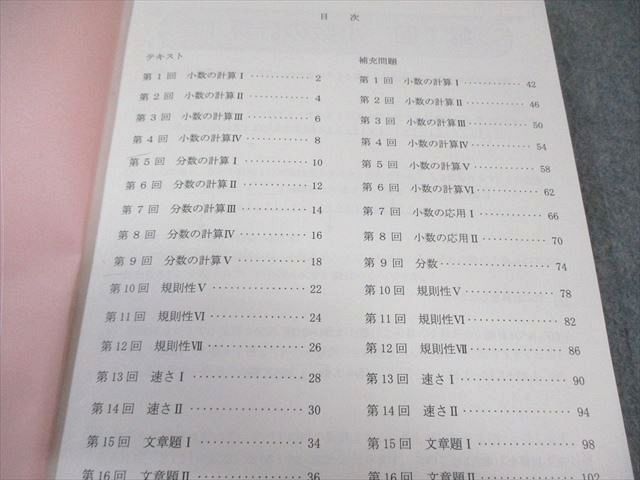 目 次
テキスト
第1回 小数の計算Ⅰ ············ 2
第2回 小数の計算Ⅱ ············ 4
第3回 小数の計算Ⅲ ············ 6
第4回 小数の計算Ⅳ ············ 8
第5回 分数の計算Ⅰ ············ 10
第6回 分数の計算Ⅱ ············ 12
第7回 分数の計算Ⅲ ············ 14
第8回 分数の計算Ⅳ ············ 16
第9回 分数の計算Ⅴ ············ 18
第10回 規則性Ⅴ ················ 22
第11回 規則性Ⅵ ················ 24
第12回 規則性Ⅶ ················ 26
第13回 速さⅠ ·················· 28
第14回 速さⅡ ·················· 30
第15回 文章題Ⅰ ················ 34
第16回 文章題Ⅱ ················ 36
補充問題
第1回 小数の計算Ⅰ ············ 42
第2回 小数の計算Ⅱ ············ 46
第3回 小数の計算Ⅲ ············ 50
第4回 小数の計算Ⅳ ············ 54
第5回 小数の計算Ⅴ ············ 58
第6回 小数の計算Ⅵ ············ 62
第7回 小数の応用Ⅰ ············ 66
第8回 小数の応用Ⅱ ············ 70
第9回 分数 ···················· 74
第10回 規則性Ⅴ ················ 78
第11回 規則性Ⅵ ················ 82
第12回 規則性Ⅶ ················ 86
第13回 速さⅠ ·················· 90
第14回 速さⅡ ·················· 94
第15回 文章題Ⅰ ················ 98
第16回 文章題Ⅱ ················ 102